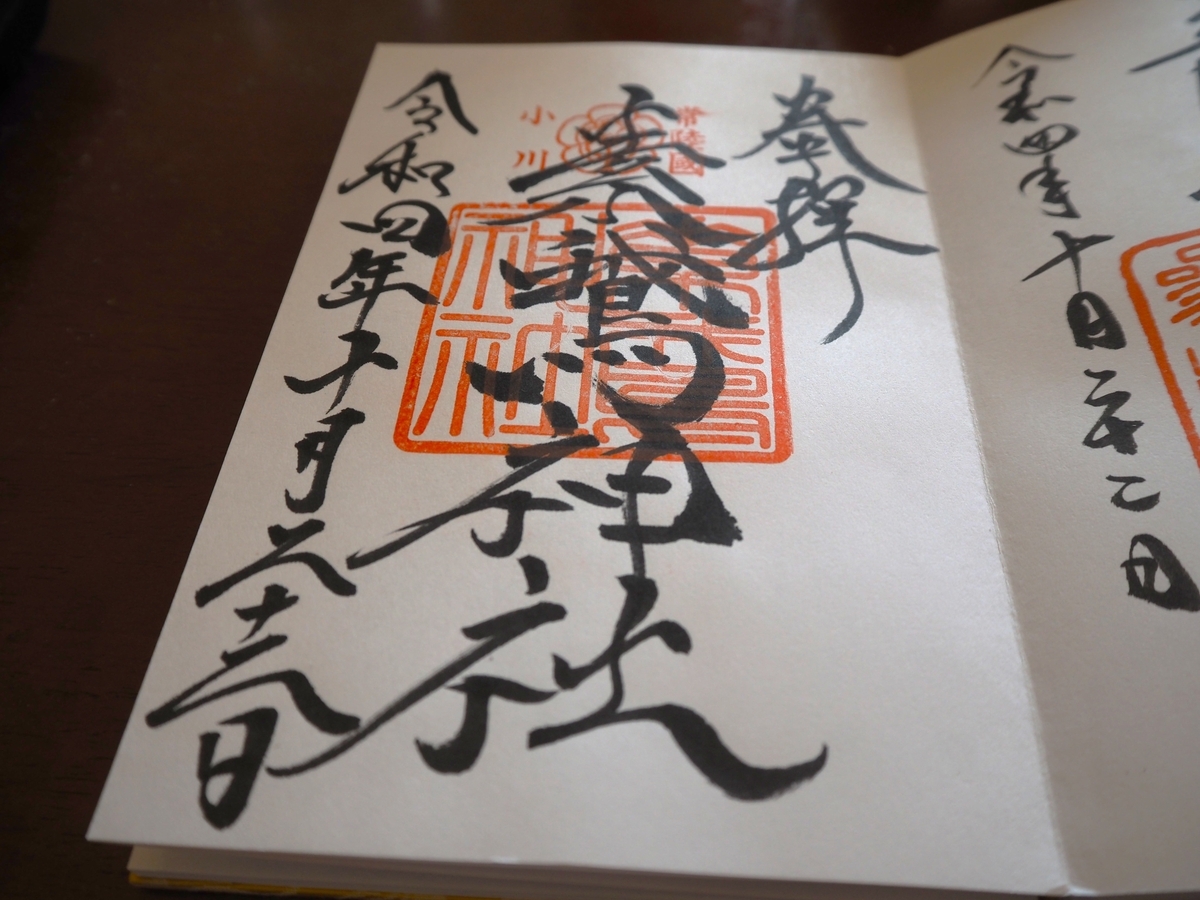 令和四年十月二十二日
奉拝
常陸國
素鵞神社
小川
令和四年十月二十三日